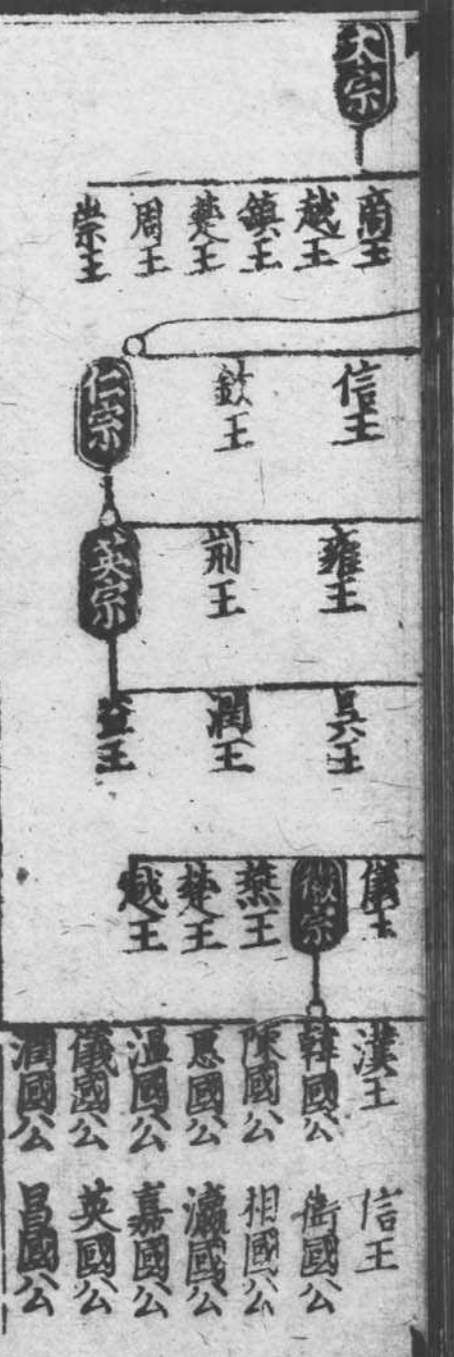 太宗
商王
越王
鎮王
楚王
周王
崇王
信王
欽王
仁宗
雍王
荆王
英宗
吳王
潤王
益王
儀王
徽宗
燕王
楚王
越王
漢王
韓國公
陳國公
惠國公
温國公
儀國公
潤國公
信王
衛國公
相國公
瀛國公
嘉國公
英國公
昌國公